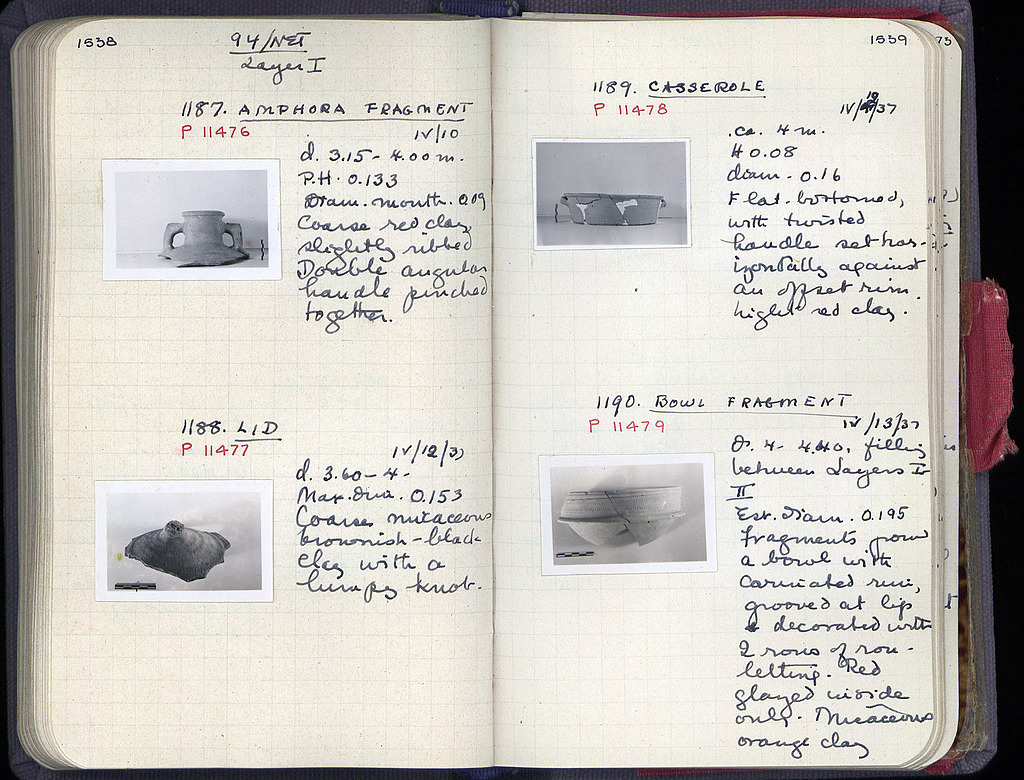 1538
94/NET
Layer I
1187. AMPHORA FRAGMENT
P 11476
IV/10
d. 3.15 - 4.00 m.
P.H. 0.133
Diam. mouth. 0.09
Coarse red clay,
slightly ribbed
Double angular
handle pinched
together.
1188. LID
P 11477
IV/12/37
d. 3.60 - 4-
Max. dim. 0.153
Coarse micaceous
brownish-black
clay with a
lumpy knob.
1539
73
1189. CASSEROLE
P 11478
IV/19/37
ca. 4 m.
H 0.08
diam. 0.16
Flat-bottomed,
with twisted
handle set hor-
izontally against
an offset rim.
Light red clay.
1190. BOWL FRAGMENT
P 11479
IV/13/37
D. 4 - 4.40, filling
between Layers I-
II
Est. diam. 0.195
Fragments from
a bowl with
carinated rim,
grooved at lip
& decorated with
2 rows of rou-
letting. Red
glazed inside
only. Micaceous
orange clay